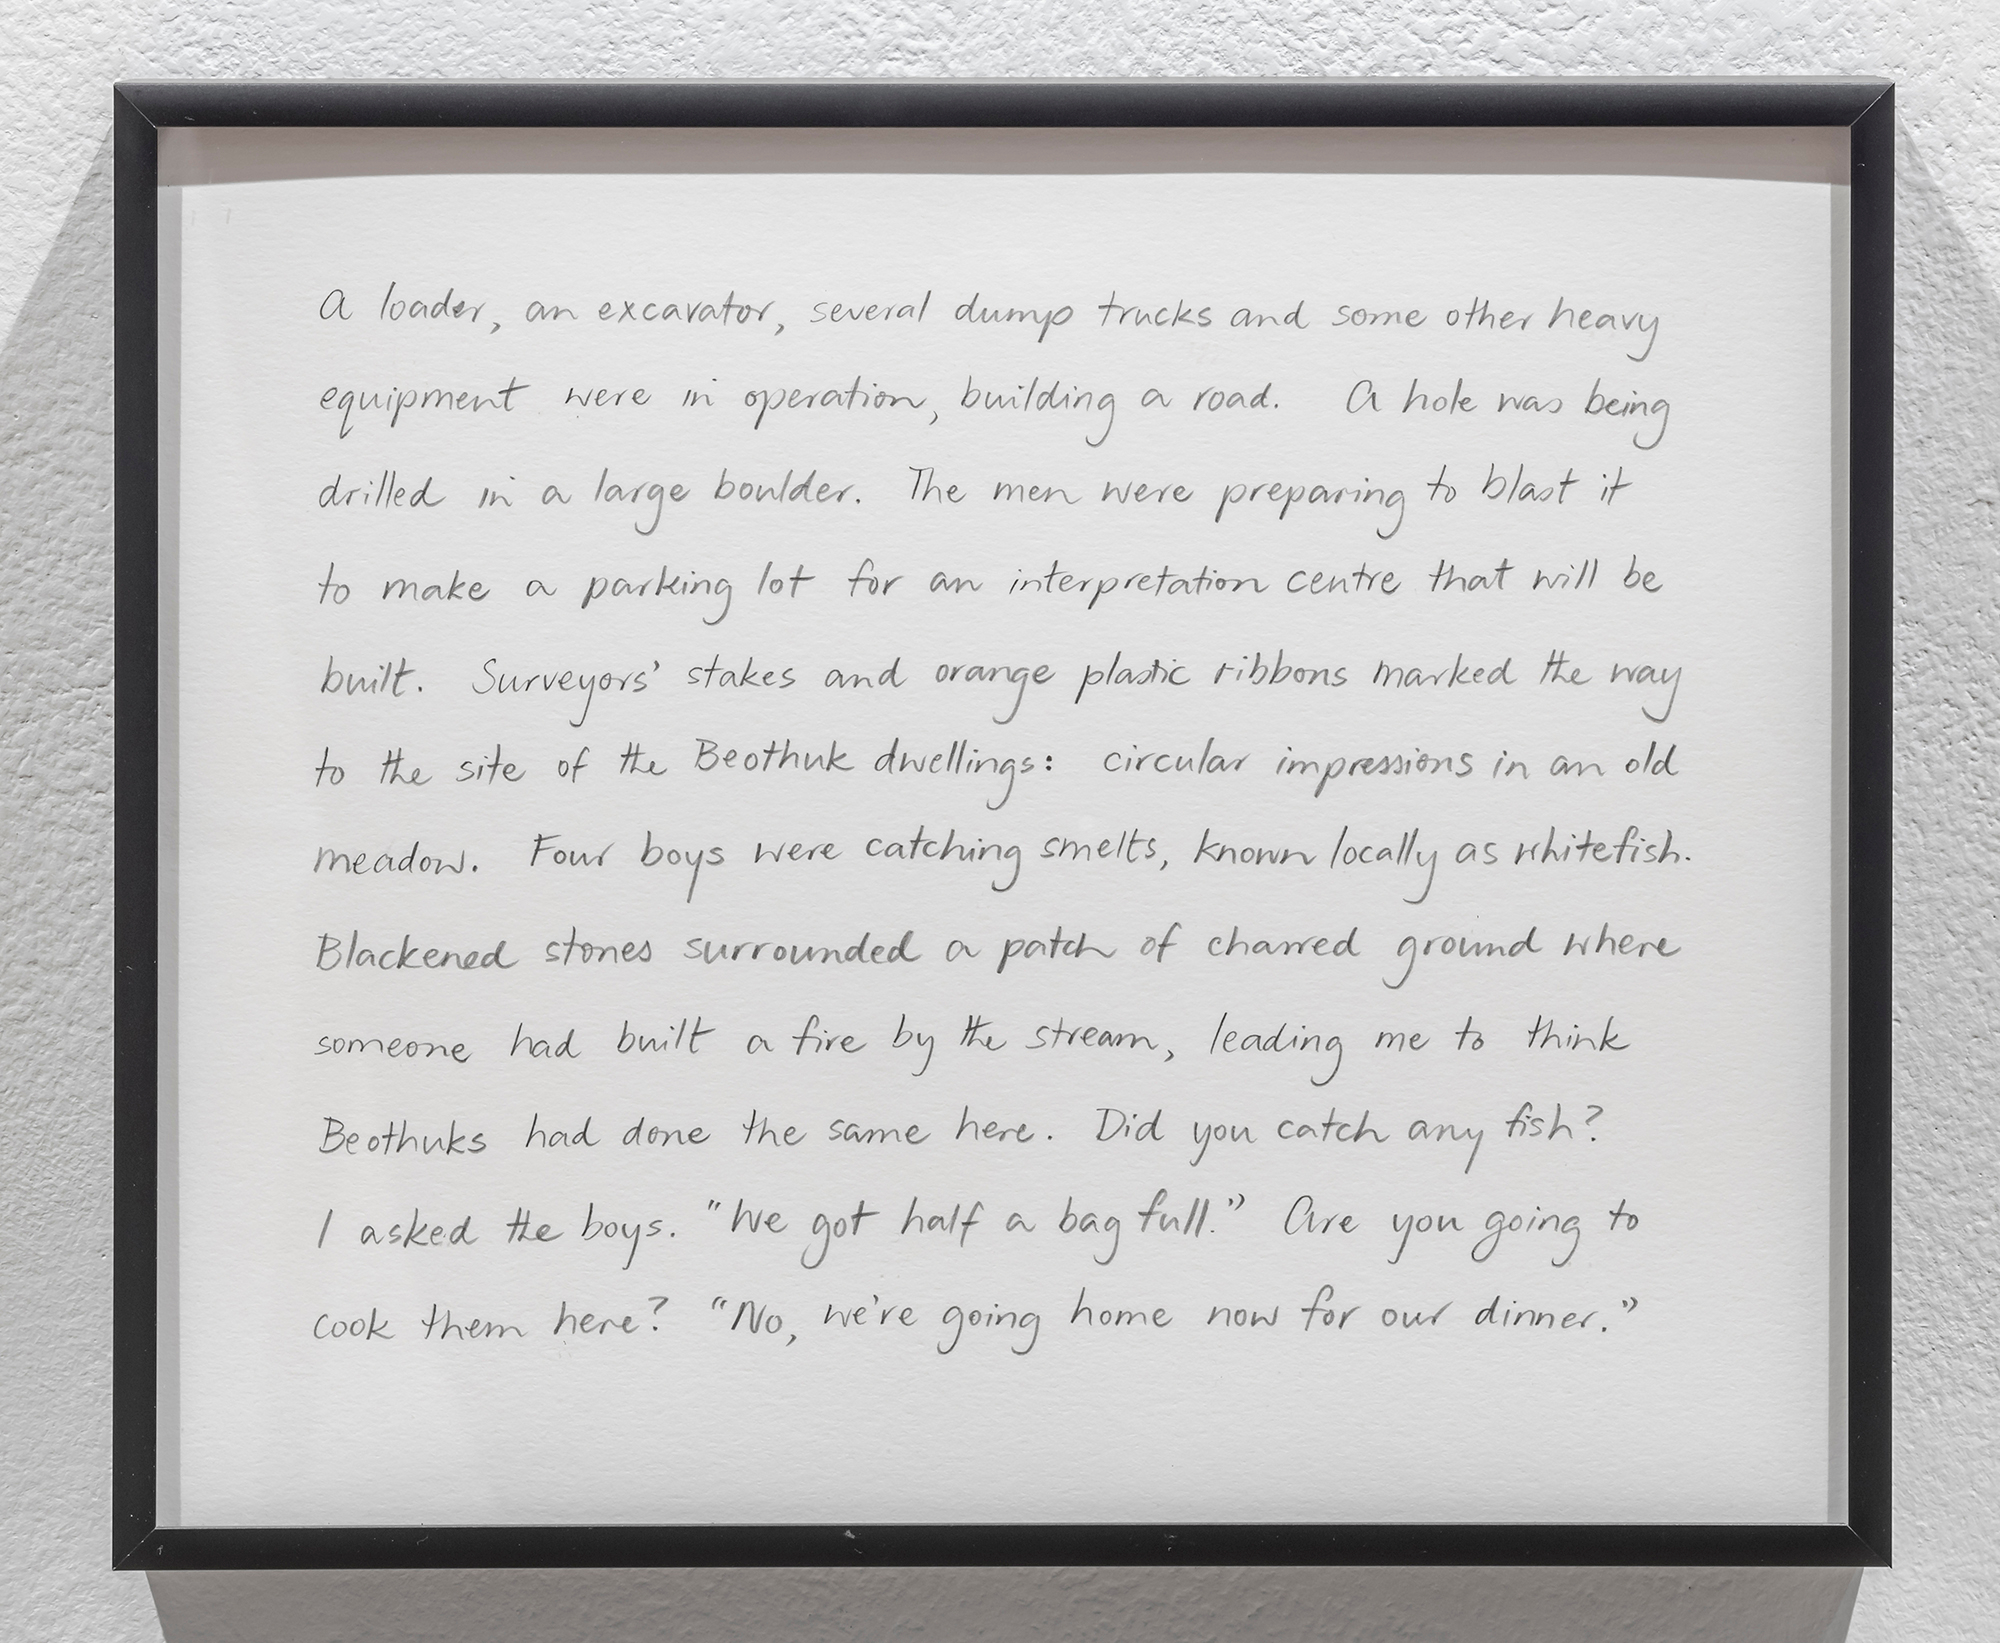 A loader, an excavator, several dump trucks and some other heavy
equipment were in operation, building a road. A hole was being
drilled in a large boulder. The men were preparing to blast it
to make a parking lot for an interpretation centre that will be
built. Surveyors' stakes and orange plastic ribbons marked the way
to the site of the Beothuk dwellings: circular impressions in an old
meadow. Four boys were catching smelts, known locally as whitefish.
Blackened stones surrounded a patch of charred ground where
someone had built a fire by the stream, leading me to think
Beothuks had done the same here. Did you catch any fish?
I asked the boys. "We got half a bag full." Are you going to
cook them here? "No, we're going home now for our dinner."